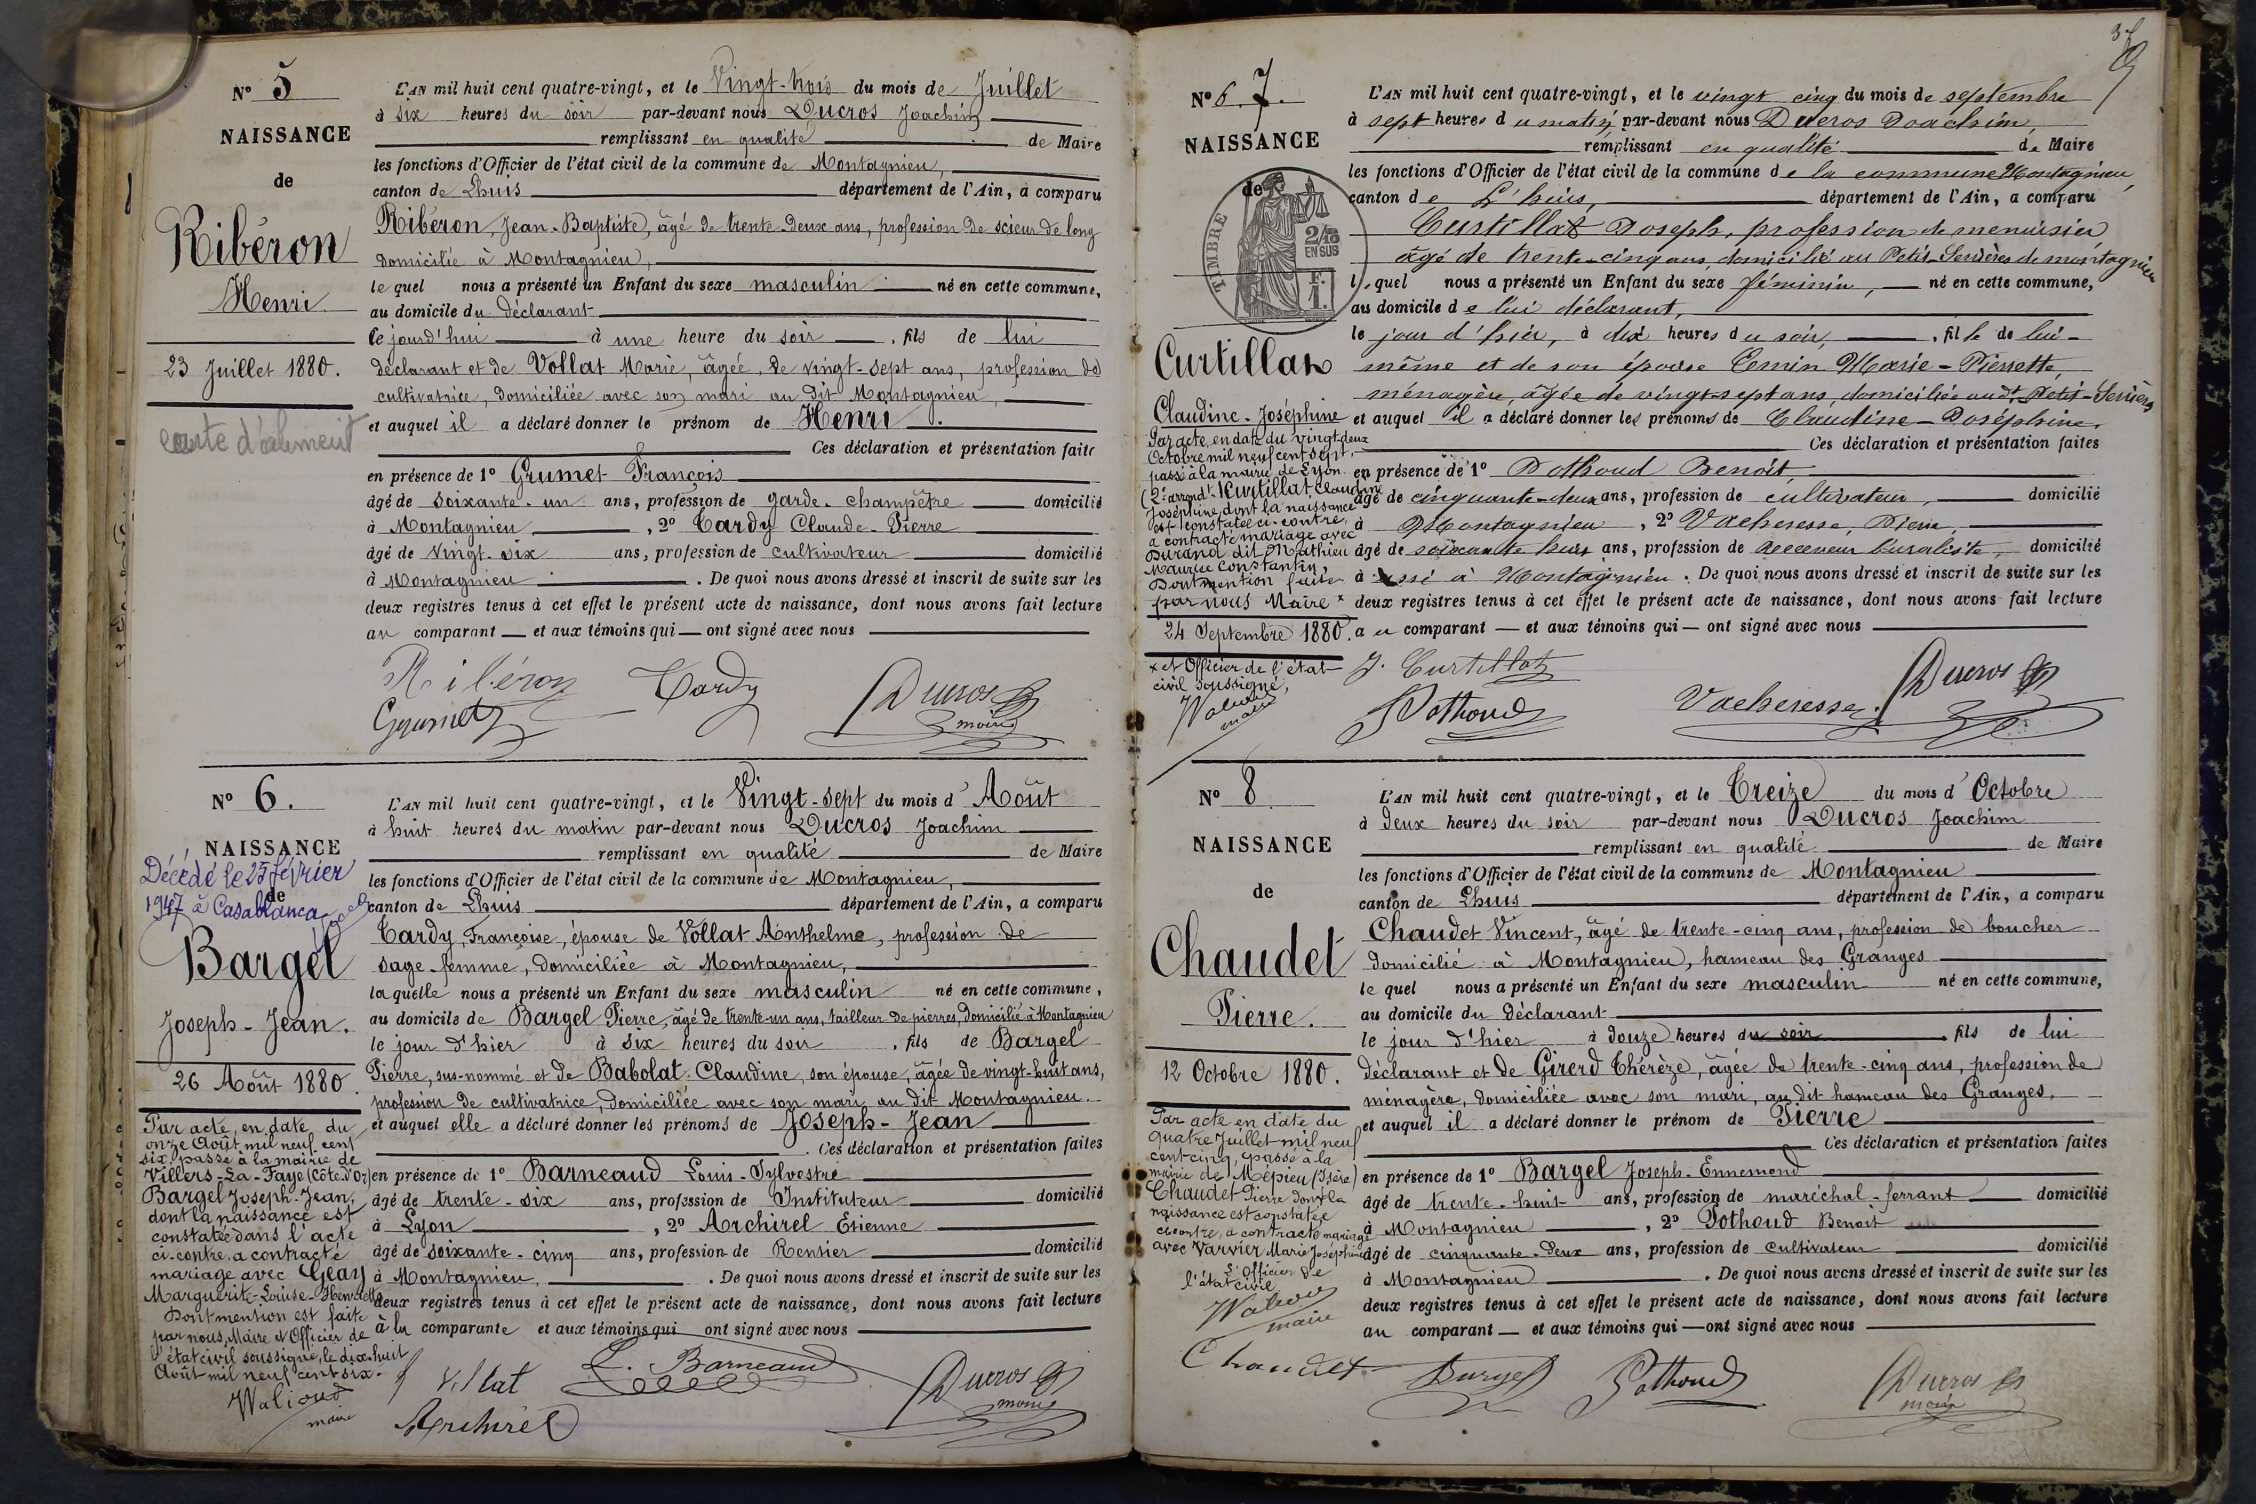 N° 5
NAISSANCE
de
Ribéron
Henri
23 Juillet 1880.
carte d'aliment
L'AN mil huit cent quatre-vingt, et le Vingt-trois du mois de Juillet
à six heures du soir par-devant nous Ducros Joachim
remplissant en qualité de Maire
les fonctions d'Officier de l'état civil de la commune de Montagnieu,
canton de Lhuis département de l'Ain, a comparu
Ribéron, Jean-Baptiste, âgé de trente-deux ans, profession de scieur de long
domicilié à Montagnieu,
le quel nous a présenté un Enfant du sexe masculin né en cette commune,
au domicile du déclarant
ce jourd'hui à une heure du soir, fils de lui
déclarant et de Vollat Marie, âgée de vingt-sept ans, profession de
cultivatrice, domiciliée avec son mari au dit Montagnieu,
et auquel il a déclaré donner le prénom de Henri.
Ces déclaration et présentation faites
en présence de 1° Grumet François
âgé de soixante-un ans, profession de garde-champêtre domicilié
à Montagnieu, 2° Tardy Claude-Pierre
âgé de vingt-six ans, profession de cultivateur domicilié
à Montagnieu. De quoi nous avons dressé et inscrit de suite sur les
deux registres tenus à cet effet le présent acte de naissance, dont nous avons fait lecture
au comparant et aux témoins qui ont signé avec nous
Ribéron Tardy Ducros
Grumet maire
N° 6.
NAISSANCE
de
Décédé le 25 février
1947 à Casablanca
Bargel
Joseph-Jean.
26 Août 1880.
Par acte, en date du
onze Août mil neuf cent
six, passé à la mairie de
Villers-La-Faye (Côte-d'Or)
Bargel Joseph-Jean,
dont la naissance est
constatée dans l'acte
ci-contre, a contracté
mariage avec Geay
Marguerite-Louise-Henriette
Dont mention est faite
par nous, Maire et Officier de
l'état civil soussigné, le dix-huit
Août mil neuf cent six.
Walioud
maire
L'AN mil huit cent quatre-vingt, et le Vingt-sept du mois d'Août
à huit heures du matin par-devant nous Ducros Joachim
remplissant en qualité de Maire
les fonctions d'Officier de l'état civil de la commune de Montagnieu,
canton de Lhuis département de l'Ain, a comparu
Tardy, Françoise, épouse de Vollat Anthelme, profession de
sage-femme, domiciliée à Montagnieu,
laquelle nous a présenté un Enfant du sexe masculin né en cette commune,
au domicile de Bargel Pierre, âgé de trente-un ans, tailleur de pierres, domicilié à Montagnieu
le jour d'hier à six heures du soir, fils de Bargel
Pierre, sus-nommé et de Babolat Claudine, son épouse, âgée de vingt-huit ans,
profession de cultivatrice, domiciliée avec son mari au dit Montagnieu.
et auquel elle a déclaré donner les prénoms de Joseph-Jean
Ces déclaration et présentation faites
en présence de 1° Barneaud Louis-Sylvestre
âgé de trente-six ans, profession de Instituteur domicilié
à Lyon, 2° Archirel Etienne
âgé de soixante-cinq ans, profession de Rentier domicilié
à Montagnieu. De quoi nous avons dressé et inscrit de suite sur les
deux registres tenus à cet effet le présent acte de naissance, dont nous avons fait lecture
à la comparante et aux témoins qui ont signé avec nous
f Vollat L. Barneaud Ducros
Archirel maire
N° 6. 7.
NAISSANCE
de
TIMBRE
2/10
EN SUS
F.
1.
Curtillat
Claudine-Joséphine
Par acte, en date du vingt-deux
Octobre mil neuf cent sept,
passé à la mairie de Lyon
(2e arrondt) Curtillat Claudine
Joséphine, dont la naissance
est constatée ci-contre,
a contracté mariage avec
Durand dit Mathieu
Maurice Constantin,
Dont mention faite
par nous Maire x
24 Septembre 1880.
x et Officier de l'état
civil soussigné,
Walioud
maire
L'AN mil huit cent quatre-vingt, et le vingt cinq du mois de septembre
à sept heures du matin, par-devant nous Ducros Joachim,
remplissant en qualité de Maire
les fonctions d'Officier de l'état civil de la commune de la commune Montagnieu,
canton de L'huis, département de l'Ain, a comparu
Curtillat Joseph, profession de menuisier
âgé de trente-cinq ans domicilié au Petit-Serrières de montagnieu
lequel nous a présenté un Enfant du sexe féminin, né en cette commune,
au domicile de lui déclarant,
le jour d'hier, à dix heures du soir, fille de lui-
même et de son épouse Cemin Marie-Pierrette,
ménagère, âgée de vingt-sept ans domiciliée audt Petit-Serrières
et auquel il a déclaré donner les prénoms de Claudine-Joséphine.
Ces déclaration et présentation faites
en présence de 1° Pothoud Benoit,
âgé de cinquante-deux ans, profession de cultivateur, domicilié
à Montagnieu, 2° Vacheresse, Pierre,
âgé de soixante huit ans, profession de Receveur buraliste, domicilié
à aussi à Montagnieu. De quoi nous avons dressé et inscrit de suite sur les
deux registres tenus à cet effet le présent acte de naissance, dont nous avons fait lecture
au comparant et aux témoins qui ont signé avec nous
J. Curtillat Ducros
Pothoud Vacheresse
N° 8
NAISSANCE
de
Chaudet
Pierre.
12 Octobre 1880.
Par acte en date du
quatre Juillet mil neuf
cent cinq, passé à la
mairie de Mépieu (Isère)
Chaudet Pierre dont la
naissance est constatée
ci-contre, a contracté mariage
avec Varvier Marie Joséphine
L'Officier de
l'état civil
Walioud
maire
L'AN mil huit cent quatre-vingt, et le Treize du mois d'Octobre
à deux heures du soir par-devant nous Ducros Joachim
remplissant en qualité de Maire
les fonctions d'Officier de l'état civil de la commune de Montagnieu
canton de Lhuis département de l'Ain, a comparu
Chaudet Vincent, âgé de trente-cinq ans, profession de boucher
domicilié à Montagnieu, hameau des Granges
le quel nous a présenté un Enfant du sexe masculin né en cette commune,
au domicile du déclarant
le jour d'hier à douze heures du soir, fils de lui
déclarant et de Girerd Thérèze, âgée de trente-cinq ans, profession de
ménagère, domiciliée avec son mari, au dit hameau des Granges,
et auquel il a déclaré donner le prénom de Pierre
Ces déclaration et présentation faites
en présence de 1° Bargel Joseph-Ennemond
âgé de trente-huit ans, profession de maréchal-ferrant domicilié
à Montagnieu, 2° Pothoud Benoit
âgé de cinquante-deux ans, profession de cultivateur domicilié
à Montagnieu. De quoi nous avons dressé et inscrit de suite sur les
deux registres tenus à cet effet le présent acte de naissance, dont nous avons fait lecture
au comparant et aux témoins qui ont signé avec nous
Chaudet Bargel Pothoud Ducros
maire